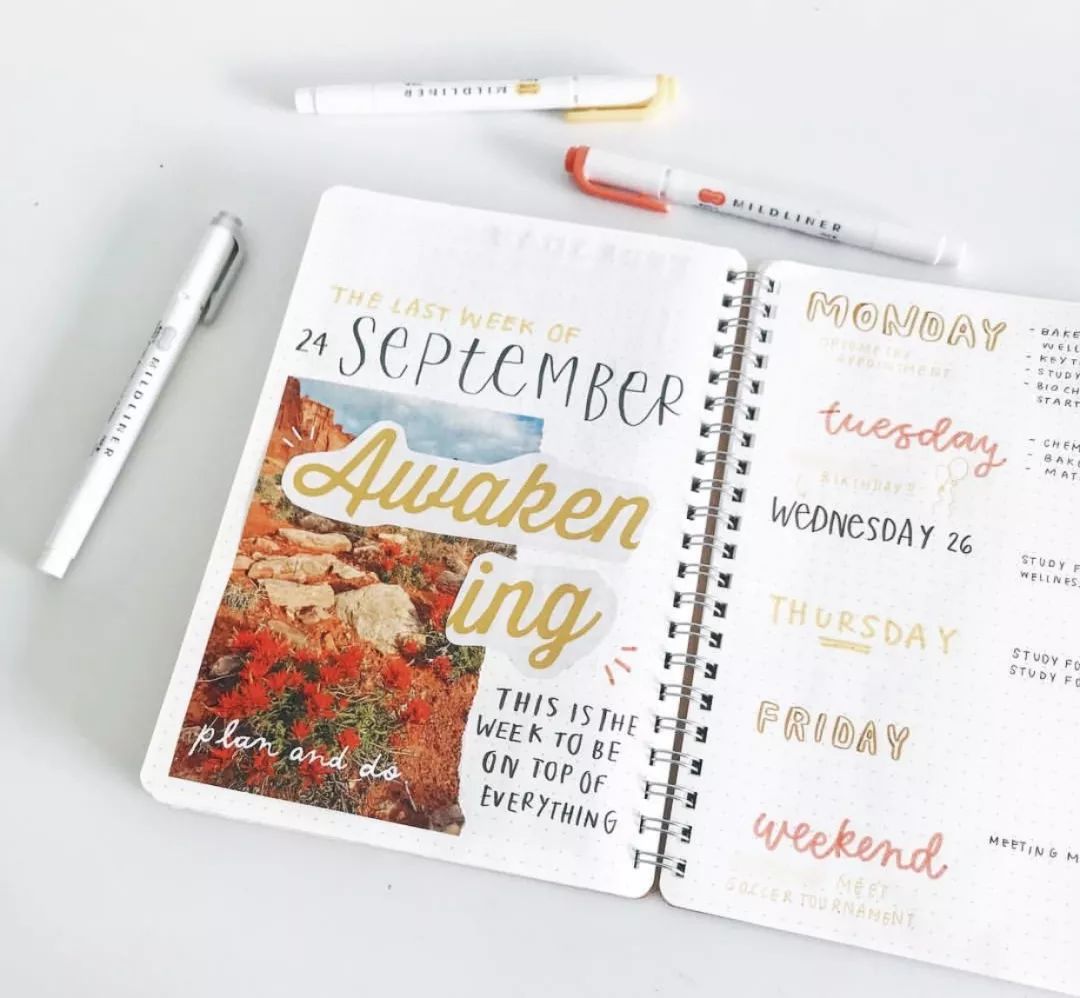 MILDLINER
MILDLINER
MILDLINER
THE LAST WEEK OF
24 SEPTEMBER
Awaken
ing
plan and do
THIS IS THE
WEEK TO BE
ON TOP OF
EVERYTHING
MONDAY
OPTOMETRY
APPOINTMENT
- BAKE
WELL
- KEYT
- STUDY
- BIO CH
START
tuesday
BIRTHDAY!!
- CHEM
- BAK
- MAT
WEDNESDAY 26
STUDY F
WELLNES
THURSDAY
STUDY FO
STUDY FO
FRIDAY
weekend
MEETING M
MEET
SOCCER TOURNAMENT